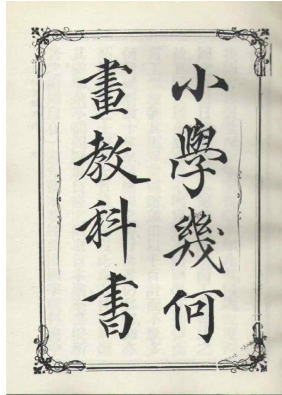 小學幾何
畫教科書